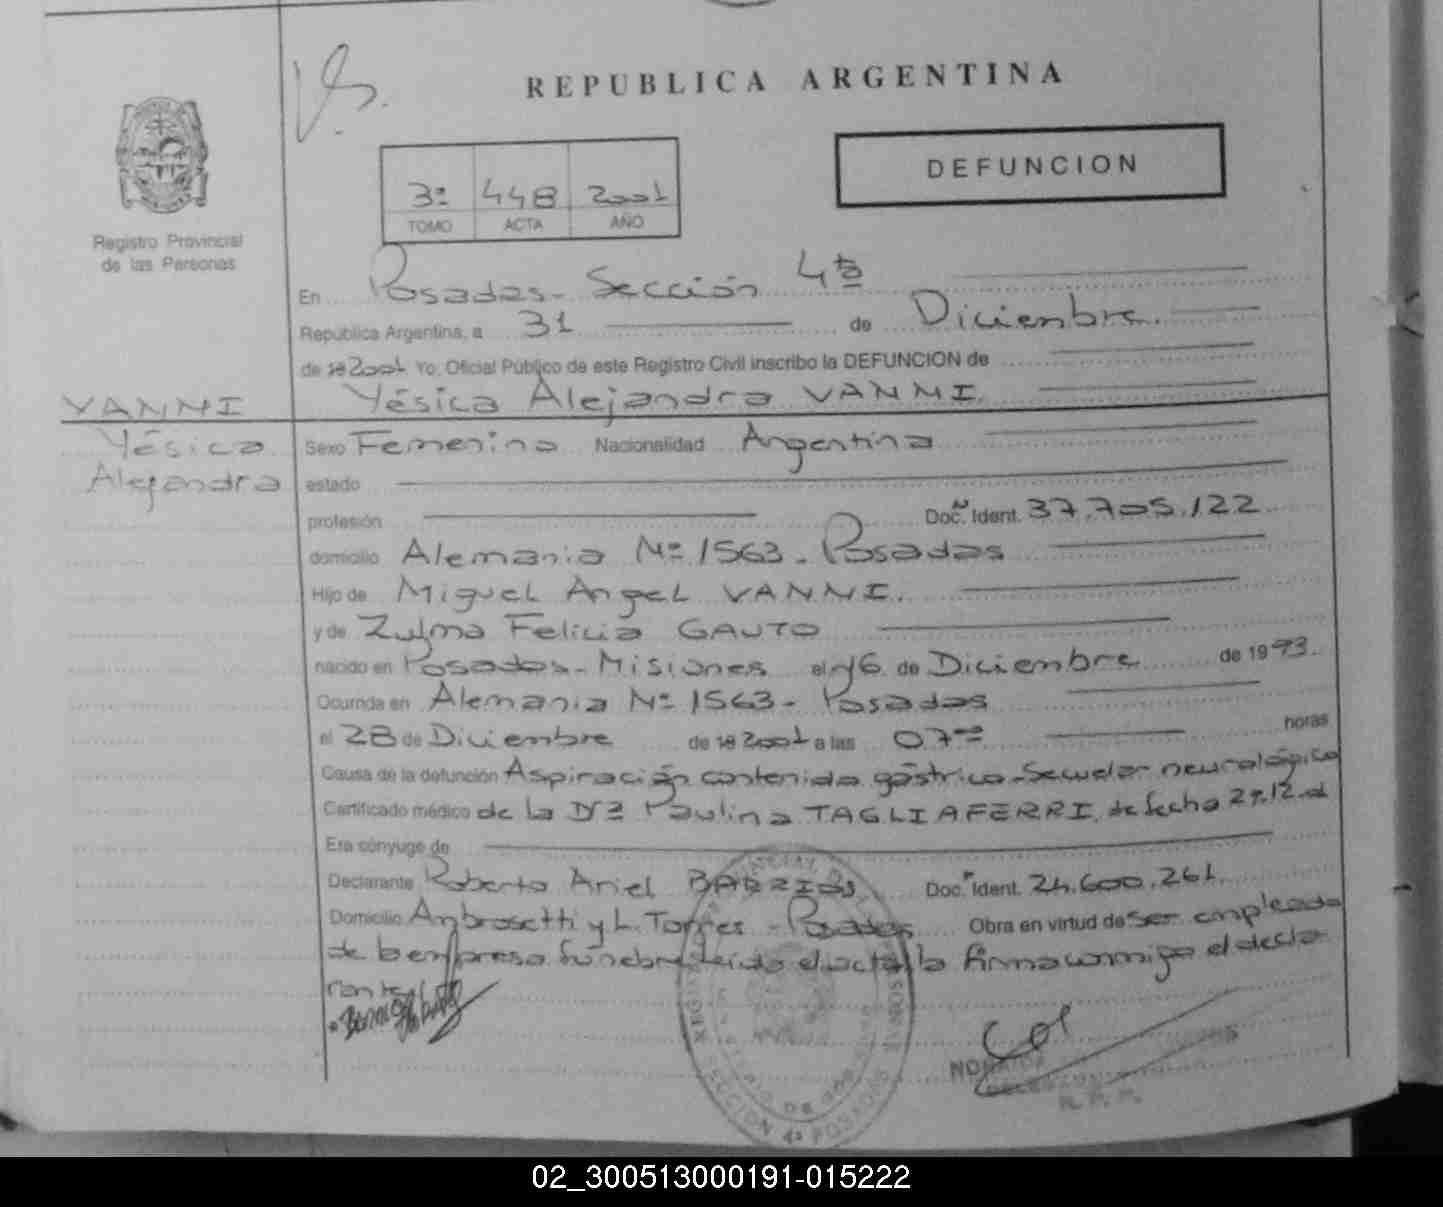 REPUBLICA ARGENTINA
DEFUNCION
3º 448 2001
TOMO ACTA AÑO
Registro Provincial
de las Personas
En Posadas - Sección 4ta
República Argentina, a 31 de Diciembre
de 19 2001 Yo, Oficial Público de este Registro Civil inscribo la DEFUNCION de
Yésica Alejandra VANNI
VANNI
Yésica
Alejandra
Sexo Femenino Nacionalidad Argentina
estado
profesión Doc. Ident. 37.705.122
domicilio Alemania Nº 1563 - Posadas
Hijo de Miguel Angel VANNI.
y de Zulma Felicia GAUTO
nacido en Posadas - Misiones el 16 de Diciembre de 1993.
Ocurrida en Alemania Nº 1563 - Posadas
el 28 de Diciembre de 19 2001 a las 07 horas
Causa de la defunción Aspiración contenido gástrico - Secuelar neurológico
Certificado médico de la Dra Paulina TAGLIAFERRI, de fecha
Era cónyuge de
Declarante Roberto Ariel BARRIOS Doc. Ident. 24.600.261
Domicilio Ambrosetti y L. Torres - Posadas Obra en virtud de ser empleado
de la empresa fúnebre leída el acta la firma conmigo el decla-
rante
SECCION 4ª POSADAS
02_300513000191-015222